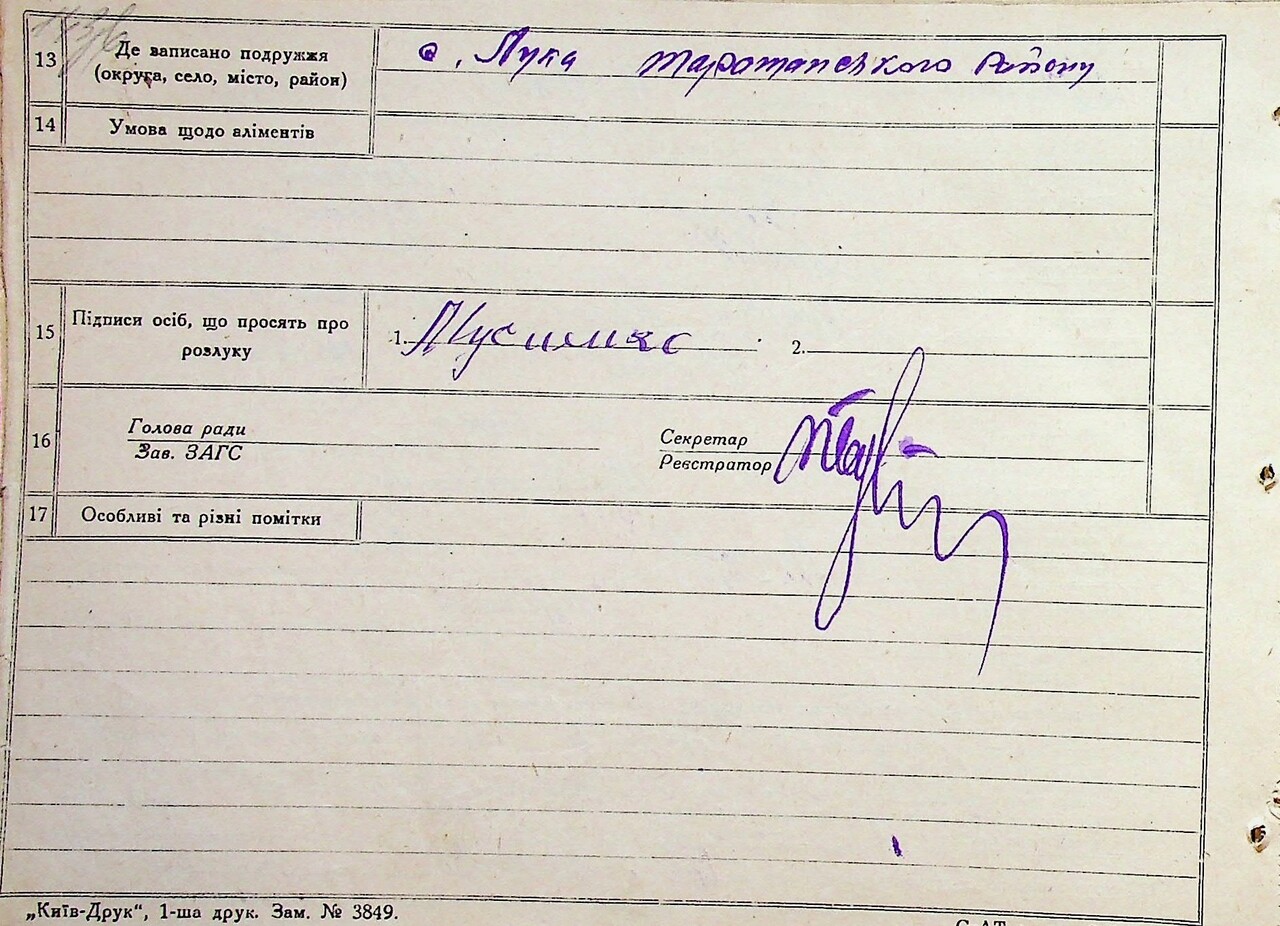 13
Де записано подружжя
(округа, село, місто, район)
с. Лука Таращанського Району
14
Умова щодо аліментів
15
Підписи осіб, що просять про
розлуку
1.
2.
16
Голова ради
Зав. ЗАГС
Секретар
Реєстратор
17
Особливі та різні помітки
„Київ-Друк“, 1-ша друк. Зам. № 3849.